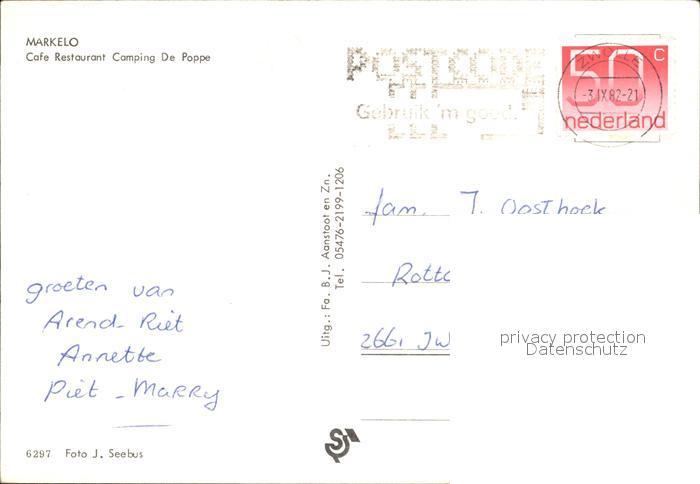 MARKELO
Cafe Restaurant Camping De Poppe
groeten van
Arend-Riet
Annette
Piet - Marry
6297 Foto J. Seebus
Uitg.: Fa. B.J. Aanstoot en Zn.
Tel. 05476-2199-1206
Gebruik 'm goed.
ZWOLLE
-3.IX.82-21
50 C
nederland
fam. J. Oosthoek
Rotte
2661 JW
privacy protection
Datenschutz